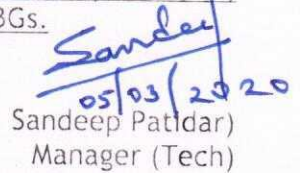 BGs.
Sandeep
05/03/2020
Sandeep Patidar)
Manager (Tech)